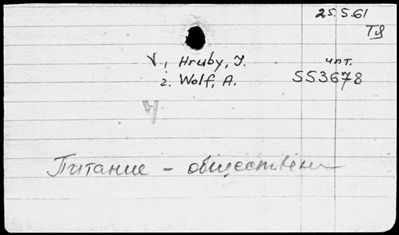 25.5.61
Тд
1, Hruby, J. чпт.
2. Wolf, A. 553678
Ч
Питание - обществен